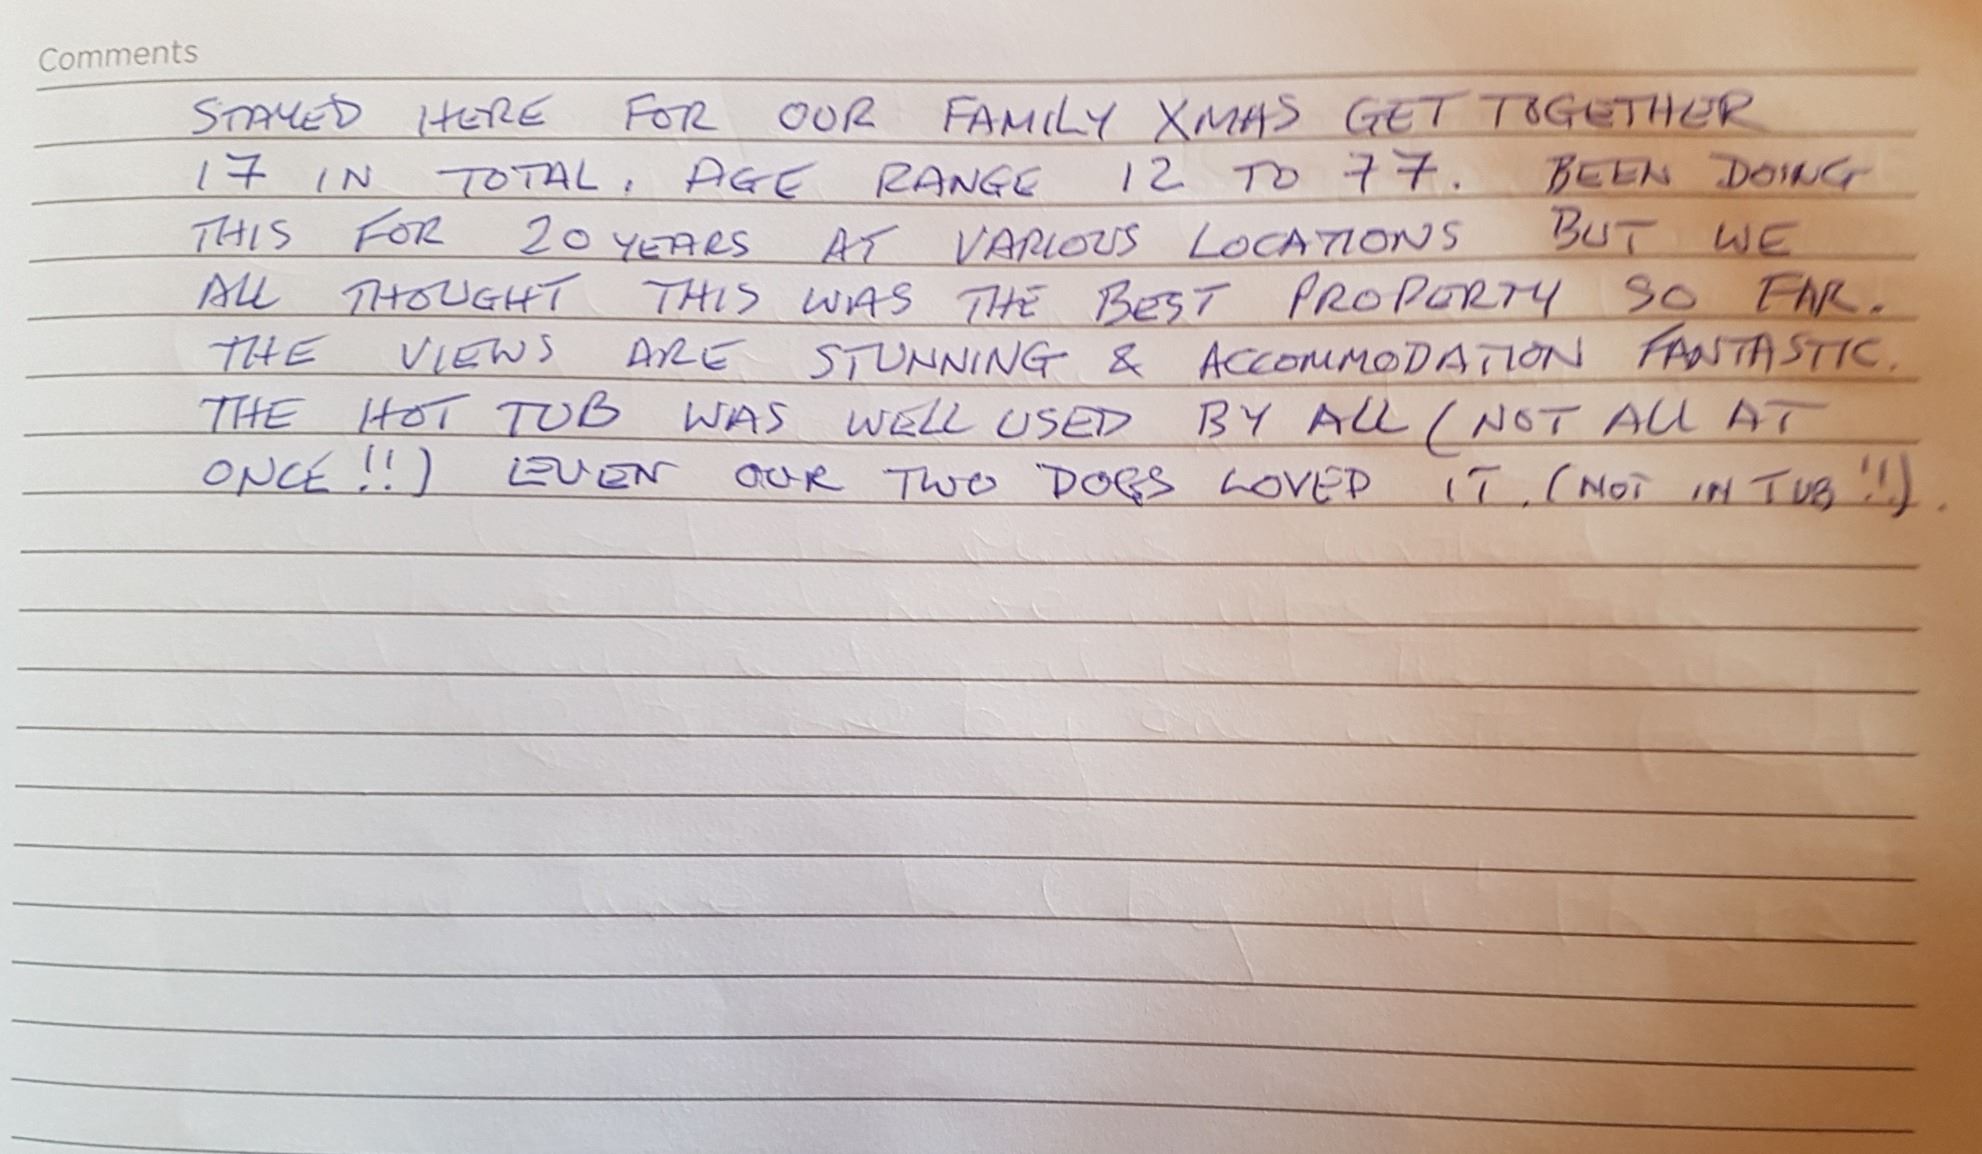 Comments
STAYED HERE FOR OUR FAMILY XMAS GET TOGETHER
17 IN TOTAL. AGE RANGE 12 TO 77. BEEN DOING
THIS FOR 20 YEARS AT VARIOUS LOCATIONS BUT WE
ALL THOUGHT THIS WAS THE BEST PROPERTY SO FAR.
THE VIEWS ARE STUNNING & ACCOMMODATION FANTASTIC.
THE HOT TUB WAS WELL USED BY ALL (NOT ALL AT
ONCE!!) EVEN OUR TWO DOGS LOVED IT. (NOT IN TUB!!).